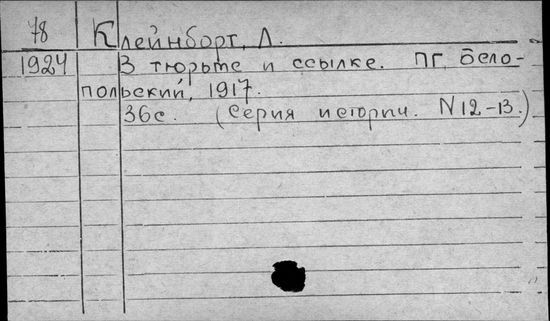 78
Клейнборт, Л.
1924 В тюрьме и ссылке. ПГ, Бело-
польский, 1917.
36с. (Серия историч. N12-13.)